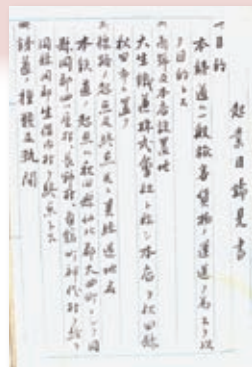 起業目論見書
一目的
本鉄道ハ一般旅客貨物ノ運送ヲ為スヲ以
テ目的トス
二商号及本店設置地
大生鉄道株式会社ト称シ本店ヲ秋田県
秋田市ニ置ク
線路ノ起点及終点並ニ其経過地名
本鉄道ノ起点ハ秋田県仙北郡大曲町トシ同
県同郡
同県同郡生保内村ヲ終点トス
鉄道ノ種類及軌間